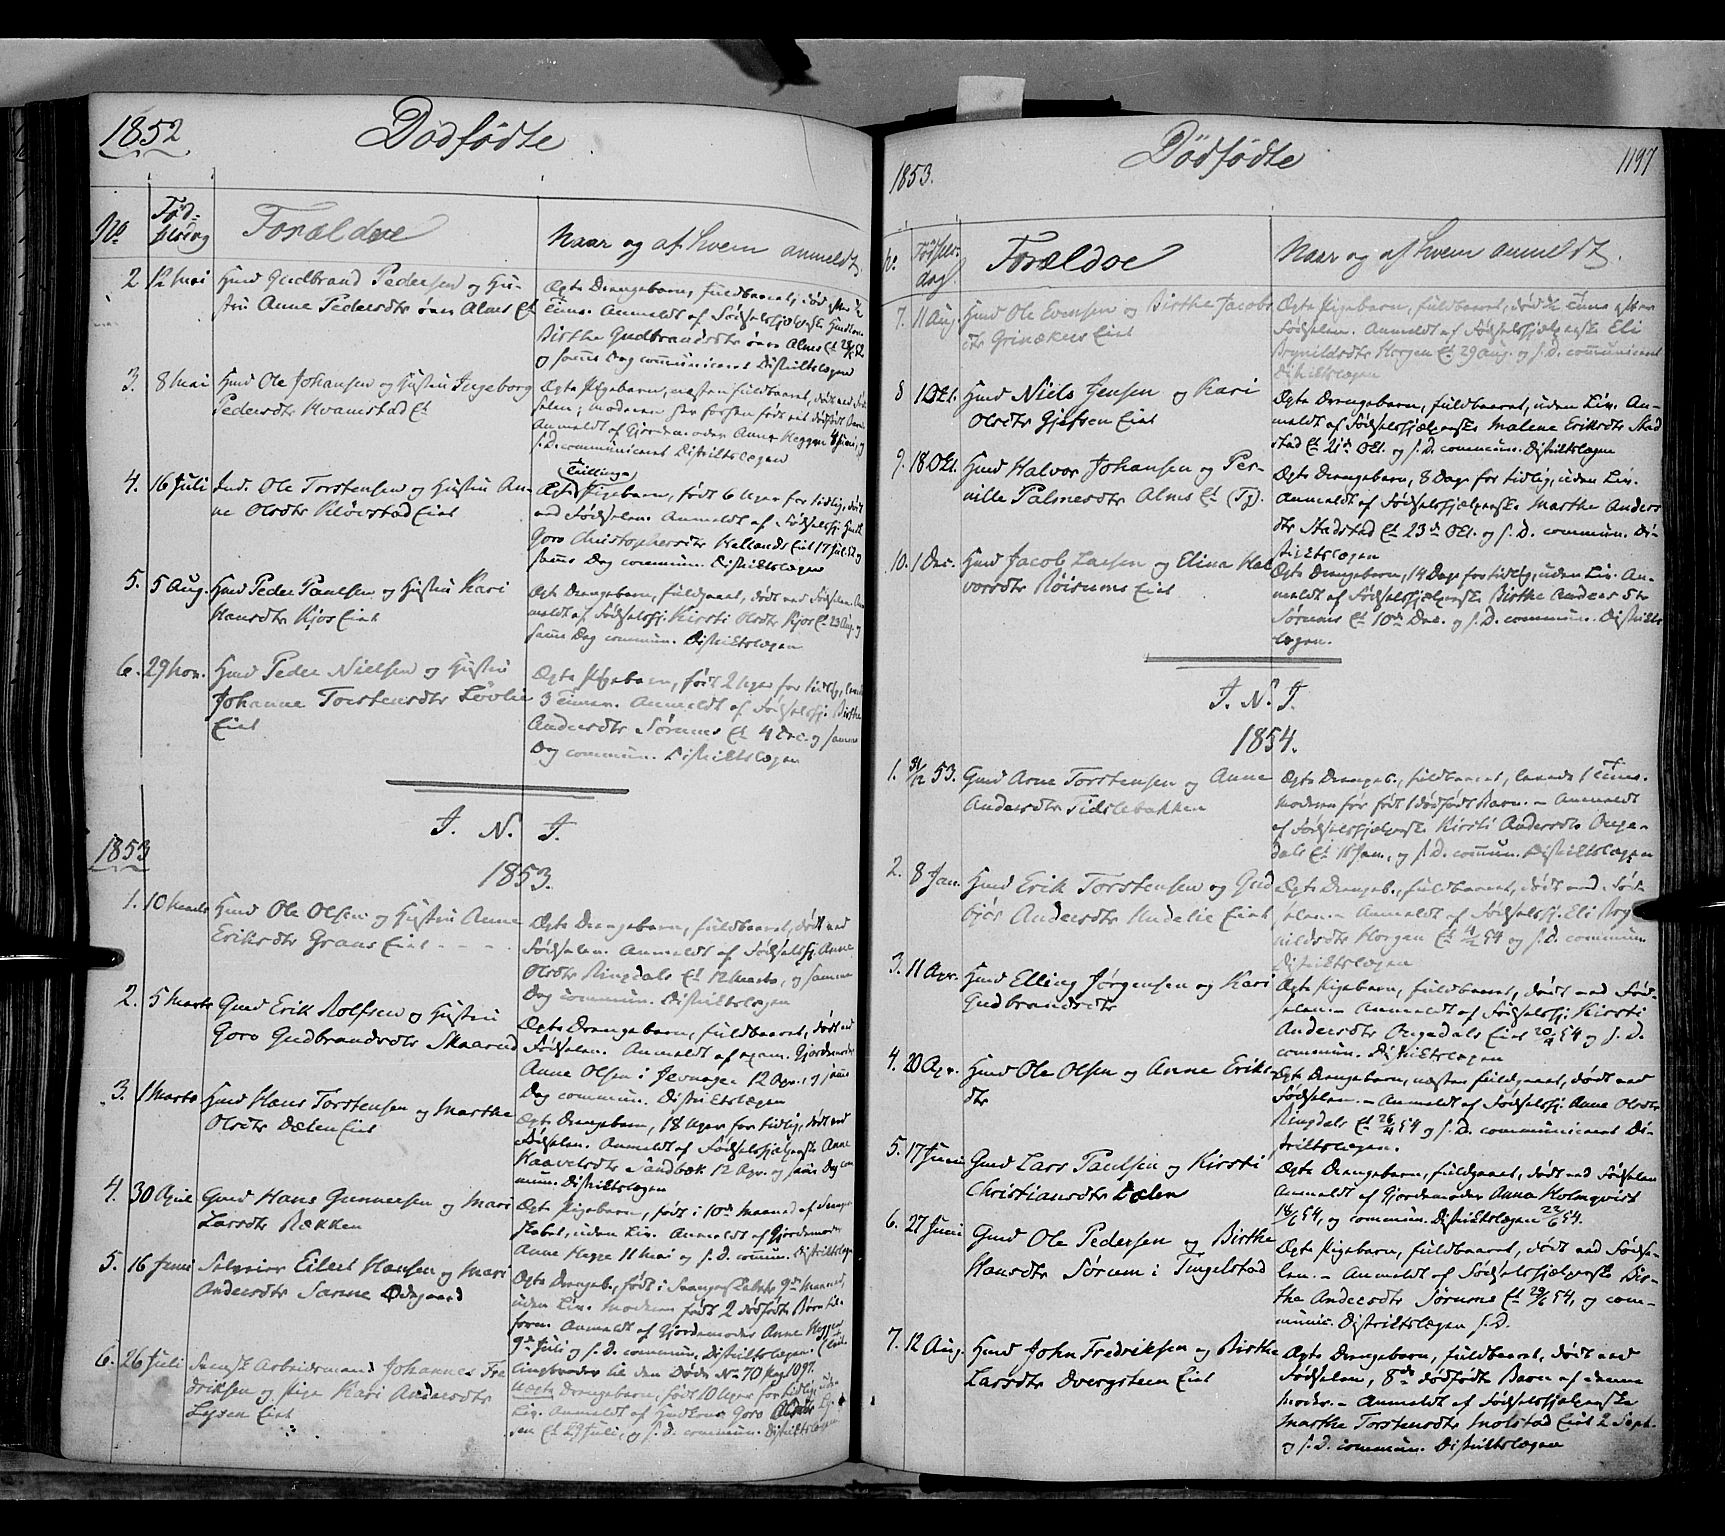 1852
Dödfödte
No
Föd-
selsdag
Forældre
Naar og af hvem anmeldt.
2
12 Mai
Huusmd Gudbrand Pedersen og Hu-
stru Anne Pedersdtr øvre Alms Et
Ægte Drengebarn, fuldbaaret, død efter ½
Time. Anmeldt af Fødselshjelperske Huuskone
Birthe Gudbrandsdtr øvre Alms Et
og samme Dag communiceret Districtslægen
3.
8 Mai
Hmd Ole Johansen og Hustru Ingeborg
Pedersdtr Kvamstad Et
Ægte Pigebarn, næsten fuldbaaret, dødt ved Fød-
selen; moderen før
Anmeldt af Gjordemoder Anne Heggen 4 Juni, og
s. D. communiceret Districtslægen
4.
16 Juli
Ind. Ole Torstensen og Hustru An-
ne Olsdtr Kløvstad Eiet
Tvillinge
Ægte Pigebarn, født 6 Uger for tidlig, dødt
ved Fødselen. Anmeldt af Fødselshj.
Goro Christophersdtr Hellands Eiet 17 Juli 52 og
samme Dag commun. Districtslægen
5.
5 Aug.
Hmd Peder Paulsen og Hustru Kari
Hansdtr Kjos Eiet
Ægte Drengebarn, fuldbaaret, dødt ved Fødselen. An-
meldt af Fødselshj. Kirsti Olsdtr Kjos Et 23 Aug. og
samme Dag commun. Districtslægen
6.
29 Nov.
Hmd Peder Nielsen og Hustru
Johanne Torstensdtr Løvlie
Eiet
Ægte Pigebarn, født 2 Uger for tidlig, levede
3 Timer. Anmeldt af Fødselshj. Birthe
Andersdtr Sørums Et 4 Dec. og samme
Dag commun. Districtslægen
J. N. J.
1853
1853.
1.
10 Marts
Hmd Ole Olsen og Hustru Anne
Eriksdtr Grans Eiet
Ægte Drengebarn, fuldbaaret, dødt ved
Fødselen. Anmeldt af Fødselshj. Anne
Olsdtr Ringdals Et 12 Marts, og samme
Dag commun. Districtslægen
2.
5 Marts
Gmd Erik Rolfsen og Hustru
Goro Gudbrandsdtr Skaarud
Ægte Drengebarn, fuldbaaret, dødt ved
Fødselen. Anmeldt af exam. Gjordemoder
Anne Olsen i Jevnager 12 Apr. og samme
Dag commun. Districtslægen
3.
1 Marts
Hmd Hans Torstensen og Marthe
Olsdtr Dælen Eiet
Ægte Drengebarn, 18 Uger for tidlig, dødt ved
Fødselen. Anmeldt af Fødselshjelperske Anne
Kaarelsdtr Sandbæk 12 Apr. og samme Dag com-
mun. Districtslægen
4.
30 April
Gmd Hans Gunnersen og Mari
Larsdtr Rækken
Ægte Pigebarn, født i 10de Maaned af Svanger-
skabet, uden Liv. Anmeldt af Gjordemoder
Anne Hegge 11 Mai og s. D. commun. Districtslægen
5.
16 Juni
Selveier Eilert Hansen og Mari
Andersdtr Sanne Ødegaard
Ægte Drengeb., født i Svangerskabets 9de Maaned,
uden Liv. Moderen født 2 dødfødte Børn til-
forn. Anmeldt af Gjordemoder Anne Hegge
9de Juli og s. D. commun. Districtslægen. (Tvil-
lingbroder til den Døde No 70 pag. 1097.
6.
26 Juli
Svensk Arbeidsmand Johannes Fre
driksen og Pige Kari Andersdtr
Lysen Eiet
Uægte Drengebarn, født 10 Uger for tidlig, uden
Liv. Anmeldt af Huuskone Goro
sen Et 29 Juli, og s. D. commun. Districtslægen
1853.
Dödfödte
1197
No.
Fødsels-
dag.
Forældre
Naar og af hvem anmeldt.
7.
11 Aug.
Hmd Ole Evensen og Birthe Jacobs
dtr Grinakers Eiet
Ægte Pigebarn, fuldbaaret, dødt ½ Time efter
Fødselen. Anmeldt af Fødselshjelperske Eli
Brynildsdtr Horgen Et 29 Aug. og s. D. communiceret
Districtslægen
8
1 Okt.
Hmd Niels Jensen og Kari
Olsdtr Gjefsen Eiet
Ægte Drengebarn, fuldbaaret, uden Liv. An-
meldt af Fødselshjelperske Malene Eriksdtr Stad
stad Et 21de Okt. og s. D. commun. Districtslægen
9.
18 Okt.
Hmd Halvor Johansen og Per-
nille Palmesdtr Alms Et (Tg).
Ægte Drengebarn, 8 Dage for tidlig, uden Liv.
Anmeldt af Fødselshjelperske Marthe Anders
dtr Stadstad Et 23de Okt. og s. D. commun. Di-
strictslægen
10.
1 Dec.
Hmd Jacob Larsen og Elina Hal
vorsdtr Røisums Eiet
Ægte Drengebarn, 14 Dage for tidlig, uden Liv. An-
meldt af Fødselshjelperske Birthe Anders dtr
Sørums Et 10de Dec. og s. D. commun. Districts
lægen.
J. N. J.
1854.
1.
31/12 53.
Gmd Arne Torstensen og Anne
Andersdtr Tidslebakken
Ægte Drengeb., fuldbaaret, levede 1 Time.
Moderen før født 1 dødfødt Barn. – Anmeldt
af Fødselshjelperske Kirsti Andersdtr Onge-
dals Et 16 Jan., og s. D. commun. Districtslægen
2.
8 Jan.
Hmd Erik Torstensen og Gud
bjør Andersdtr Hvdelie Eiet
Ægte Drengeb., fuldbaaret, dødt ved Fød-
selen. – Anmeldt af Fødselshj. Eli Bryn
nildsdtr Horgen Et 54 og s. D. commun.
Districtslægen
3.
11 Apr.
Hmd Elling Jørgensen og Kari
Gudbrandsdtr
Ægte Pigebarn, fuldbaaret, dødt ved Fød-
selen. – Anmeldt af Fødselshj. Kirsti
Andersdtr Ongedals Eiet 20/4 54 og s. D.
commun. Districtslægen
4.
20 Apr.
Hmd Ole Olsen og Anne Eriks-
dtr
Ægte Drengebarn, næsten fuldbaaret, dødt ved
Fødselen. – Anmeldt af Fødselshj. Anne Olsdtr
Ringdals Et 26/4 54 og s. D. communiceret Di-
strictslægen.
5.
17 Juni
Gmd Lars Paulsen og Kirsti
Christiansdtr Dælen
Ægte Drengebarn, fuldbaaret, dødt ved Fødselen
Anmeldt af Gjordemoder Anna Holmqvist
18/6 54, og commun. Districtslægen 22/6 54.
6.
27 Juni
Gmd Ole Pedersen og Birthe
Hansdtr Sørum i Tingelstad
Ægte Pigebarn, fuldbaaret, dødt ved Fødse-
len. – Anmeldt af Fødselshjelperske Bir-
the Andersdtr Sørums Et 29/6 54, og com-
munic. Districtslægen s. D.
7.
12 Aug.
Hmd John Fredriksen og Birthe
Larsdtr Dvergsteen Eiet
Ægte Drengebarn, fuldbaaret, dødt ved
Fødselen, 8de dødfødte Barn af denne
Moder. – Anmeldt af Fødselshjelperske
Marthe Torstensdtr Molstad Eiet 2 Sept.
og s. D. commun. Districtslægen